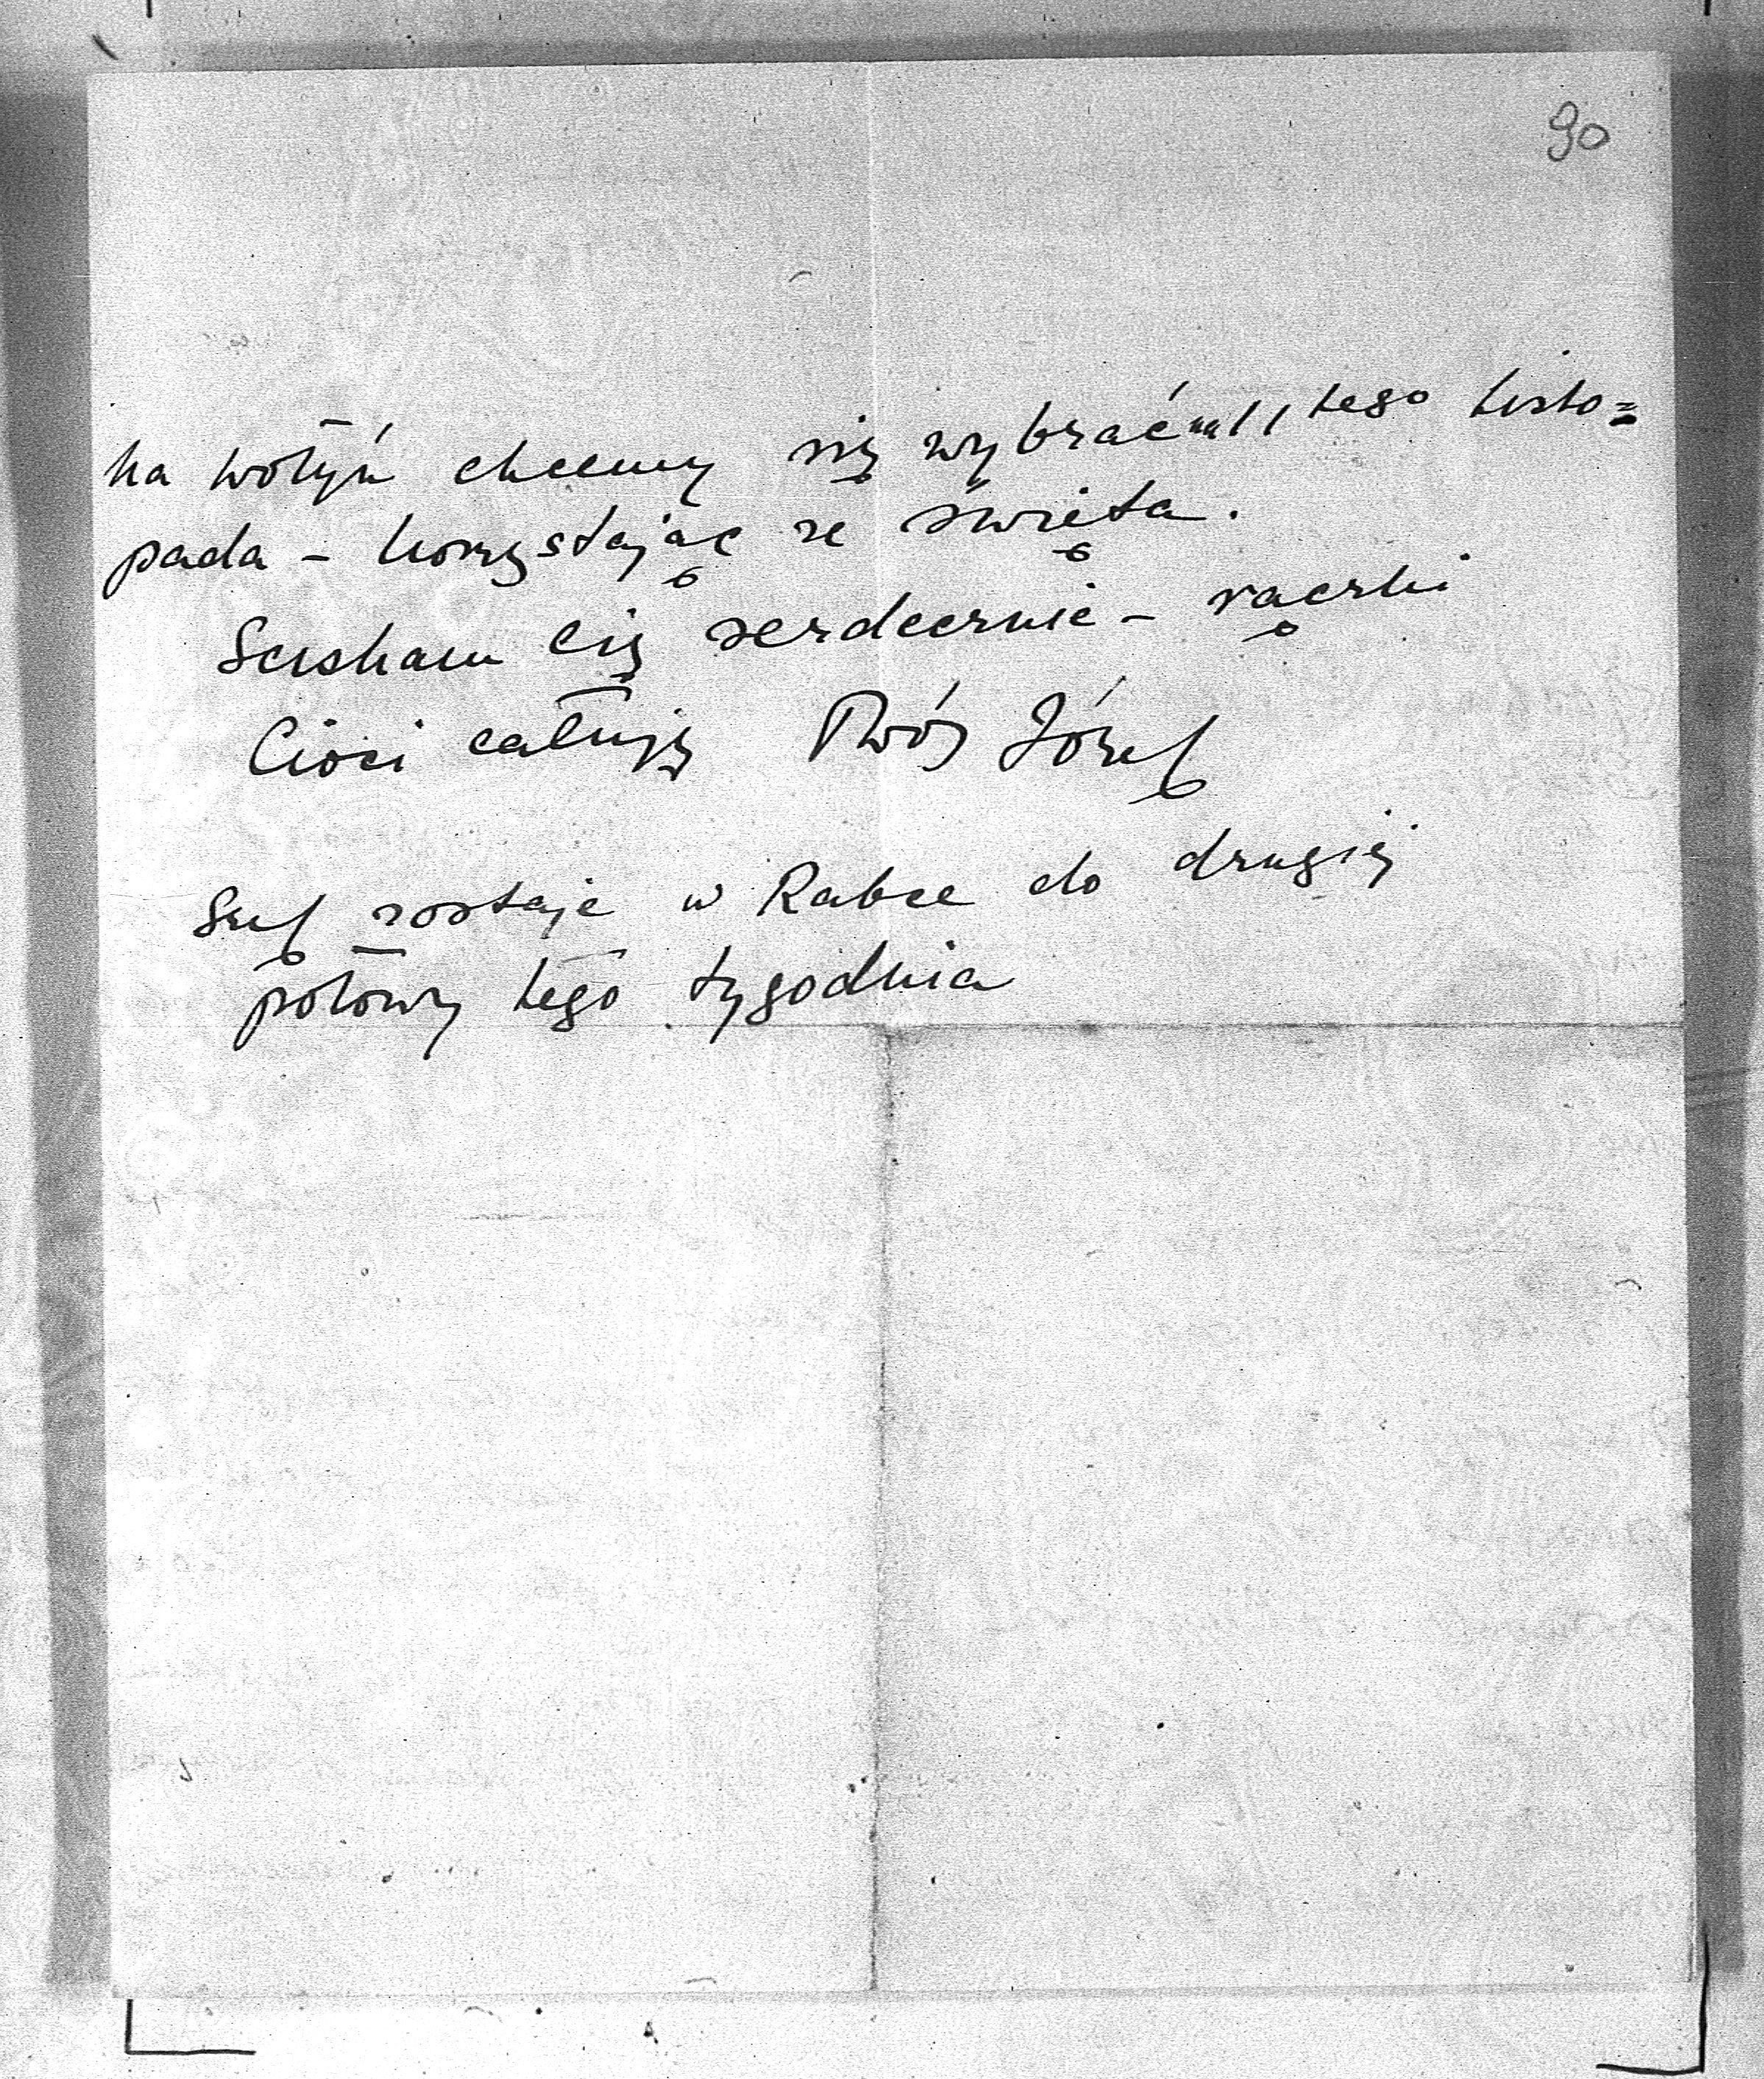 90
na Wołyń chcemy się wybrać na 11 tego listo=
pada - korzystając ze święta.
Ściskam cię serdecznie - rączki
Cioci całuję Twój Józef
Szef zostaje w Rabce do drugiej
połowy tego tygodnia